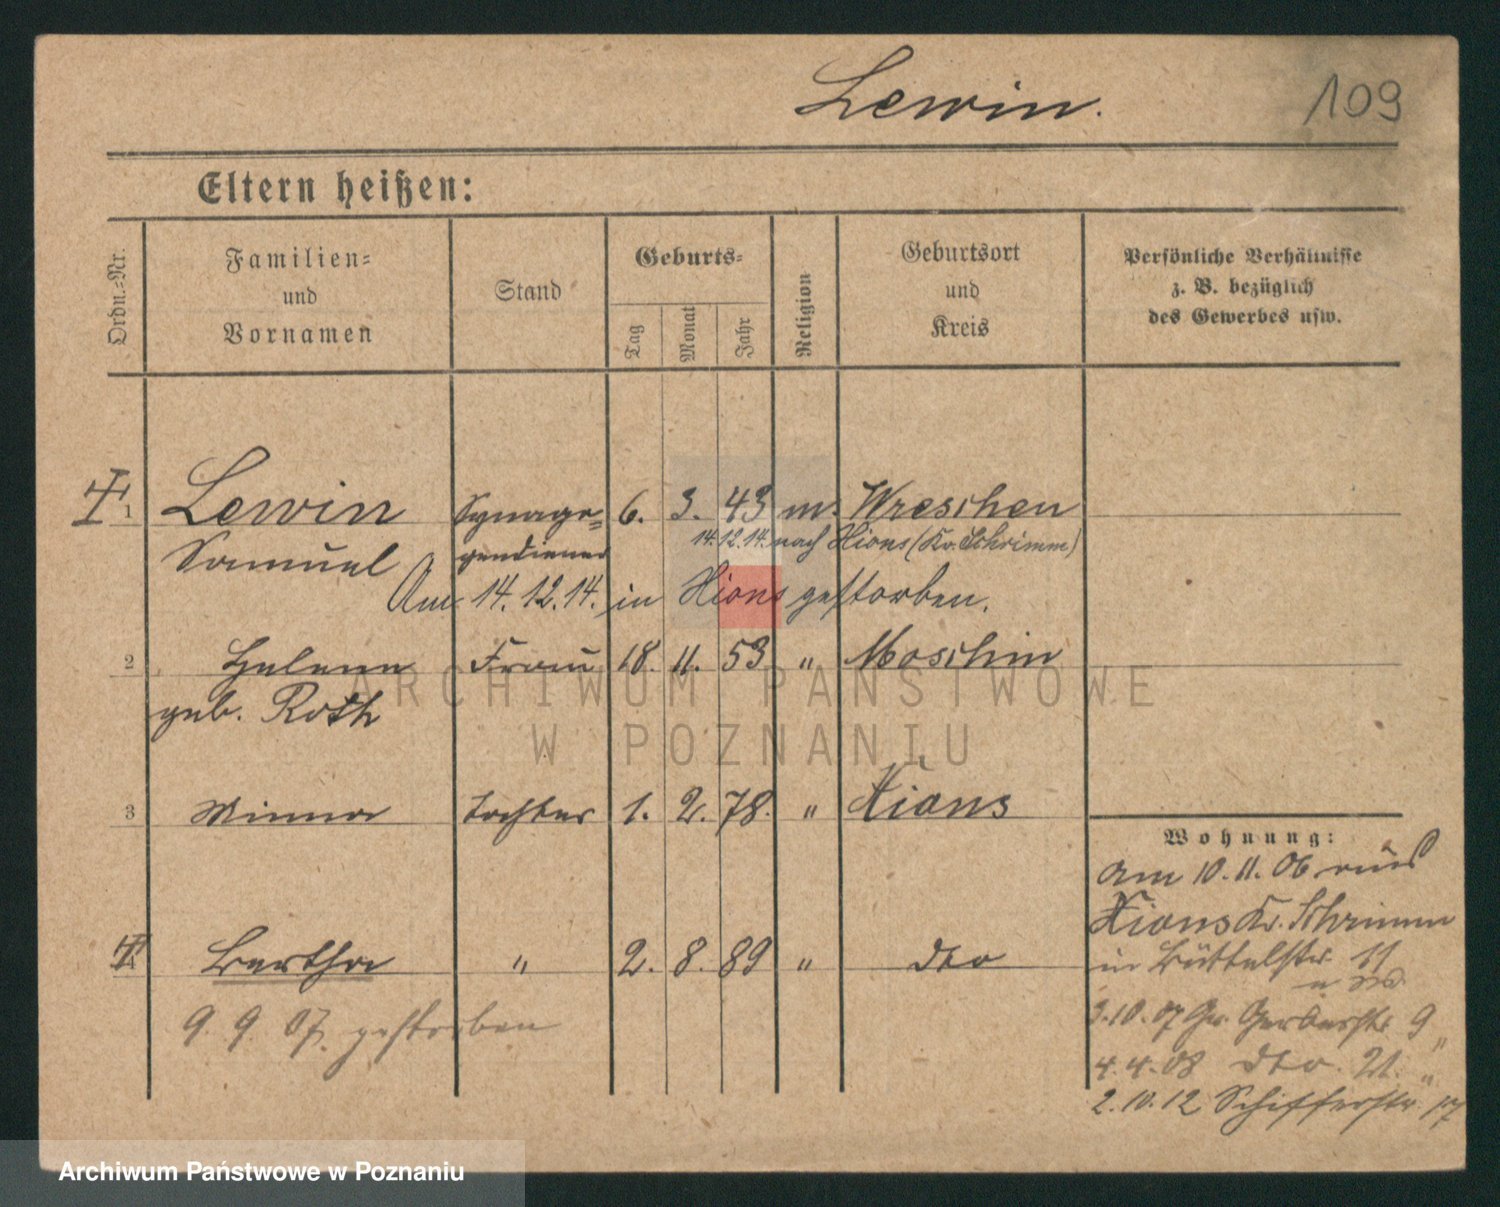 Lewin.
109
Eltern heißen:
Ordn.-Nr.
Familien-
und
Vornamen
Stand
Geburts-
Tag
Monat
Jahr
Religion
Geburtsort
und
Kreis
Persönliche Verhältnisse
z. B. bezüglich
des Gewerbes usw.
1 Lewin Synago- 6. 3. 43 m. Wreschen
14.12.14. nach Xions (Kr. Schrimm)
Samuel gendiener
Am 14.12.14. in Xions gestorben.
2 Helene Frau 18. 11. 53 " Moschin
geb. Roth
ARCHIWUM PAŃSTWOWE
W POZNANIU
3 Minna Tochter 1. 2. 78. " Xions
Bertha " 2. 8. 89 " dto
9. 9. 07. gestorben
Wohnung:
Am 10.11.06 aus
Xions Kr. Schrimm
in Büttelstr. 11
3.10.07 Gr. Gerberstr. 9 "
4.4.08 dto. 21. "
2.10.12 Schifferstr. 17
Archiwum Państwowe w Poznaniu